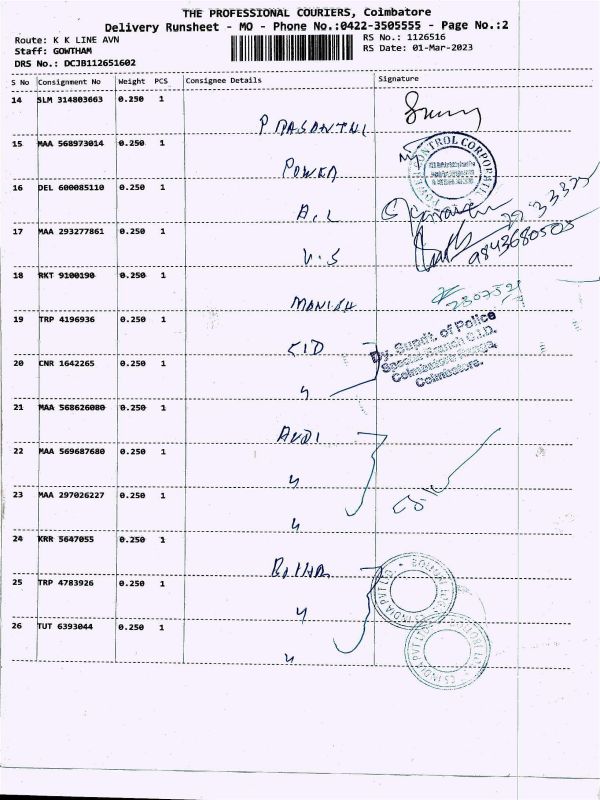 THE PROFESSIONAL COURIERS, Coimbatore
Delivery Runsheet - MO - Phone No.:0422-3505555 - Page No.:2
Route: K K LINE AVN
RS No.: 1126516
Staff: GOWTHAM
RS Date: 01-Mar-2023
DRS No.: DCJB112651602
S No Consignment No Weight PCS Consignee Details Signature
14 SLM 314803663 0.250 1
15 MAA 568973014 0.250 1
POWER
POWER CONTROL CORPORATE
16 DEL 600085110 0.250 1
A.L
17 MAA 293277861 0.250 1
9843680505
V.S
18 RKT 9100190 0.250 1
MANISH
19 TRP 4196936 0.250 1
CID
Dy. Supdt. of Police
Special Branch C.I.D.
Coimbatore Range,
Coimbatore.
20 CNR 1642265 0.250 1
21 MAA 568626080 0.250 1
AUDI
22 MAA 569687680 0.250 1
23 MAA 297026227 0.250 1
24 KRR 5647055 0.250 1
25 TRP 4783926 0.250 1
26 TUT 6393044 0.250 1